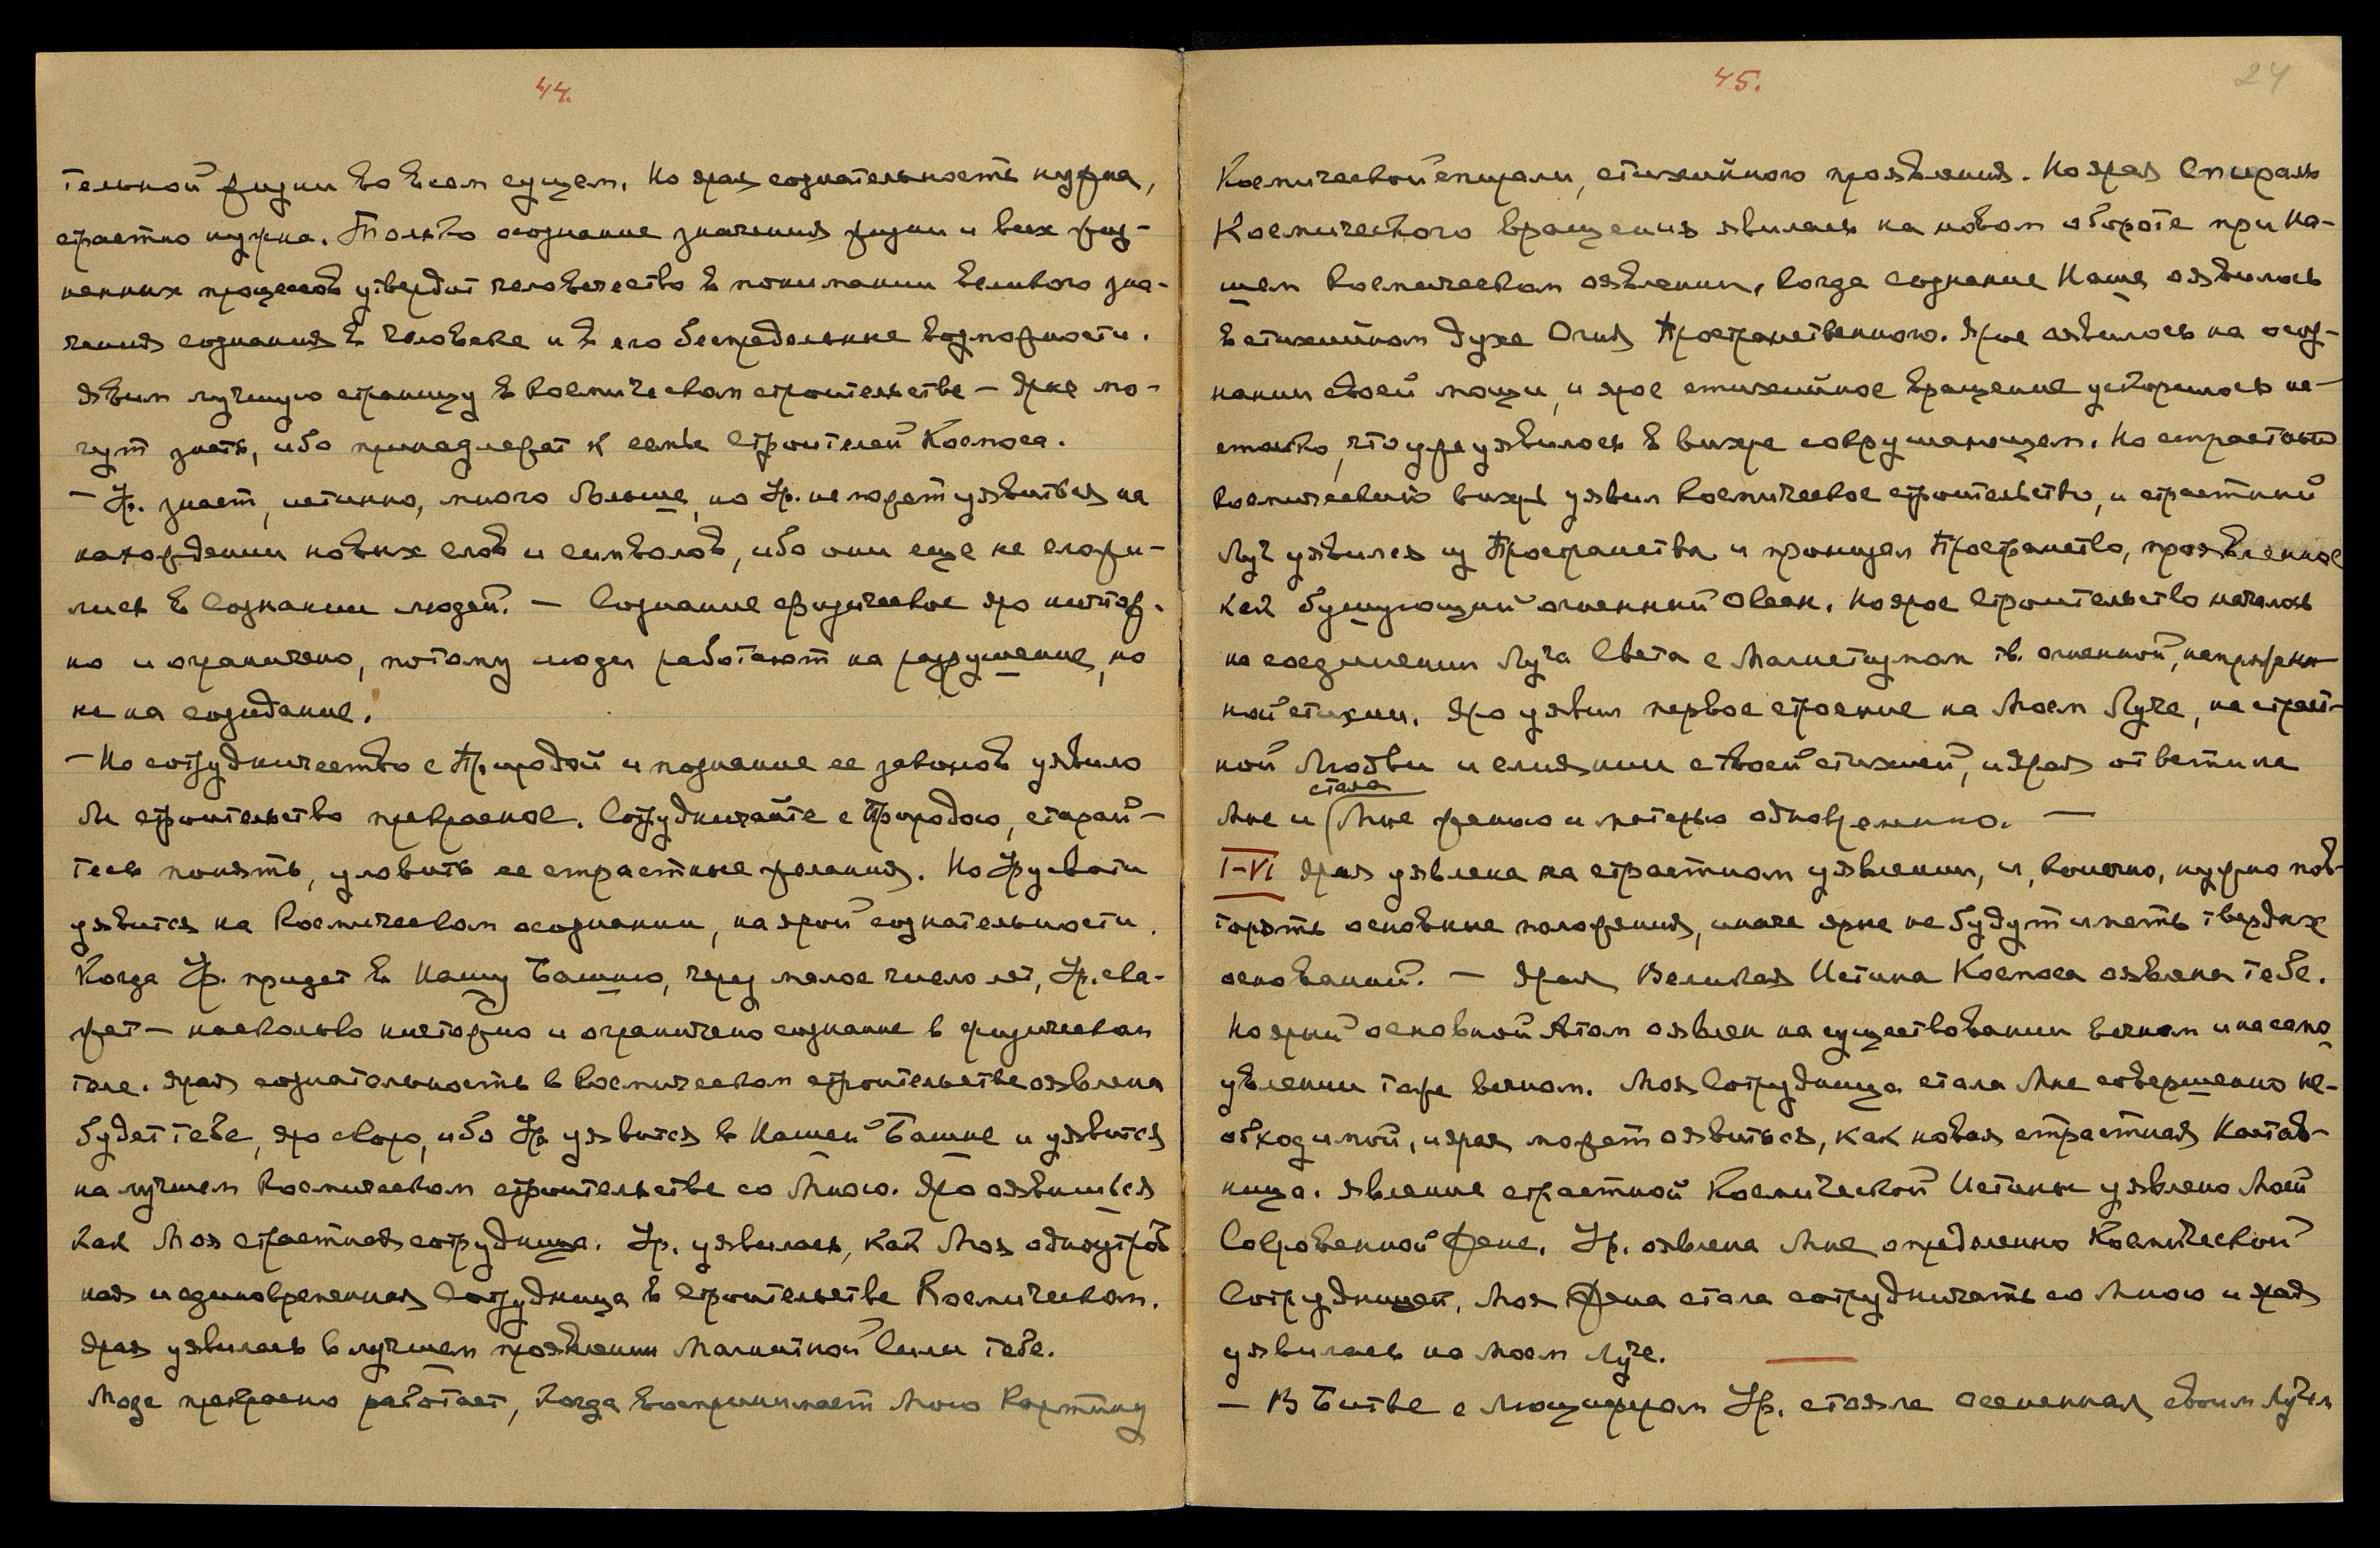 44.
тельной жизни во всем сущем. Но ярая сознательность нужна,
страстно нужна. Только осознание значения жизни и всех жиз-
ненных процессов утвердит человечество в понимании великого зна-
чения сознания в человеке и в его беспредельные возможности.
Явим лучшую страницу в Космическом строительстве — Ярые мо-
гут знать, ибо принадлежат к семье Строителей Космоса.
— Ур. знает, истинно, много больше, но Ур. не может уявиться на
нахождении новых слов и символов, ибо они еще не сложи-
лись в Сознании людей. — Сознание физическое яро ничтож-
но и ограничено, потому люди работают на разрушение, но
не на созидание.
— Но сотрудничество с Природой и познание ее законов уявило
бы строительство прекрасное. Сотрудничайте с Природою, старай-
тесь понять, уловить ее страстные желания. Но Урусвати
уявится на Космическом осознании, на ярой сознательности.
Когда Ур. придет в Нашу Башню, через малое число лет, Ур. ска-
жет — насколько ничтожно и ограничено сознание в физическом
теле. Ярая сознательность в Космическом строительстве оявлена
будет тебе, яро скоро, ибо Ур. уявится в Нашей Башне и уявится
на лучшем Космическом строительстве со Мною. Яро оявишься
как Моя страстная сотрудница. Ур. уявилась, как Моя одноутроб
ная и единовременная Сотрудница в Строительстве Космическом.
Ярая уявилась в лучшем проявлении Магнитной Силы тебе.
Мозг прекрасно работает, когда воспринимает Мою Картину
45.
24
Космической спирали, стихийного проявления. Но ярая Спираль
Космического вращения явилась на новом обороте при На-
шем Космическом оявлении, когда сознание Наше оявилось
в стихийном духе Огня Пространственного. Ярые оявились на осоз-
нании своей мощи, и ярое стихийное вращение ускорилось на-
столько, что уже уявилось в вихре сокрушающем. Но страстный
космический вихрь уявил Космическое строительство, и страстный
Луч уявился из Пространства и пронизал Пространство, проявленное
как бушующий огненный Океан. Но ярое Строительство началось
на соединении Луча Света с Магнетизмом тв. огненной, напряжен-
ной стихии. Яро уявил первое строение на Моем Луче, на страст-
ной Любви и слиянии с твоей стихией, и ярая ответила
стала
Мне и Мне женою и матерью одновременно. —
I-VI Ярая уявлена на страстном уявлении, и, конечно, нужно пов-
торять основные положения, иначе ярые не будут иметь твердых
оснований. — Ярая Великая Истина Космоса оявлена тебе.
Но ярый основной Атом оявлен на существовании вечном и на само
уявлении таже вечном. Моя Сотрудница стала Мне совершенно не-
обходимой, и ярая может оявиться, как новая страстная Настав-
ница. Явление страстной Космической Истины уявлено Моей
Сокровенной Жене. Ур. оявлена Мне определенно Космической
Сотрудницей. Моя Жена стала сотрудничать со Мною и ярая
уявилась на Моем Луче.
— В Битве с Люцифером Ур. стояла осененная своим Лучом